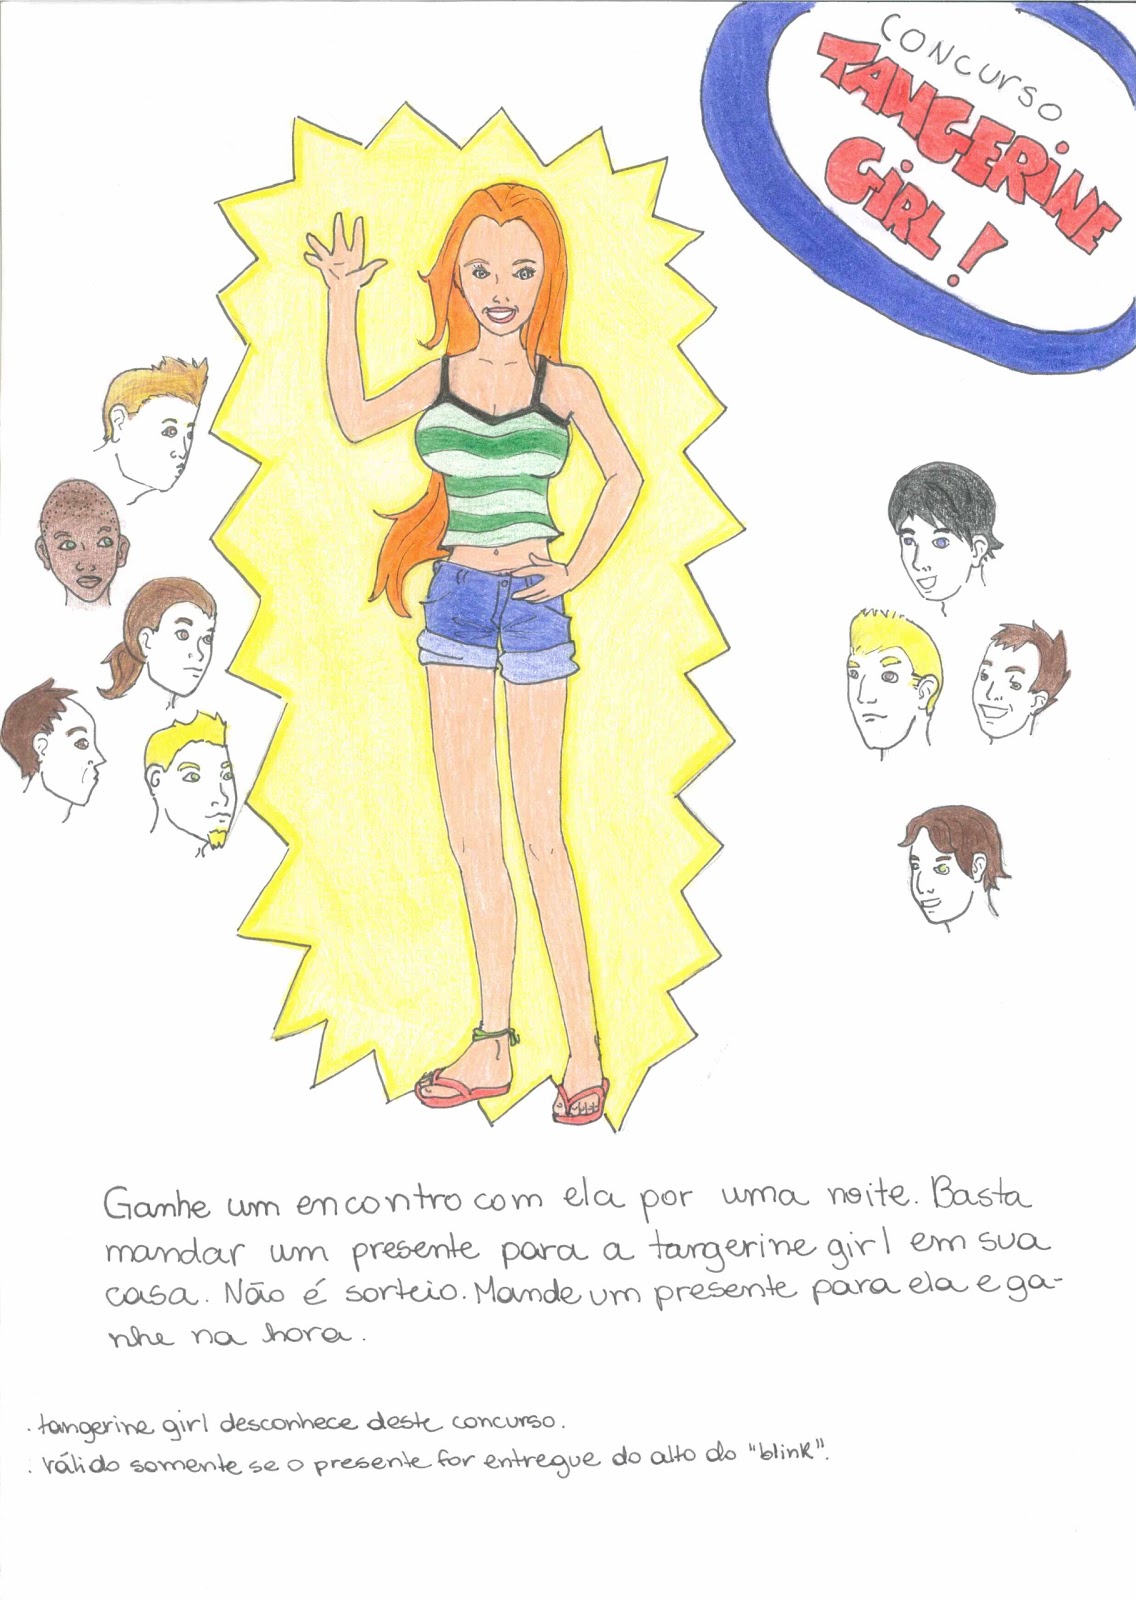 CONCURSO
TANGERINE
GIRL!
Ganhe um encontro com ela por uma noite. Basta
mandar um presente para a tangerine girl em sua
casa. Não é sorteio. Mande um presente para ela e ga-
nhe na hora.
. tangerine girl desconhece deste concurso.
. válido somente se o presente for entregue do alto do "blink".